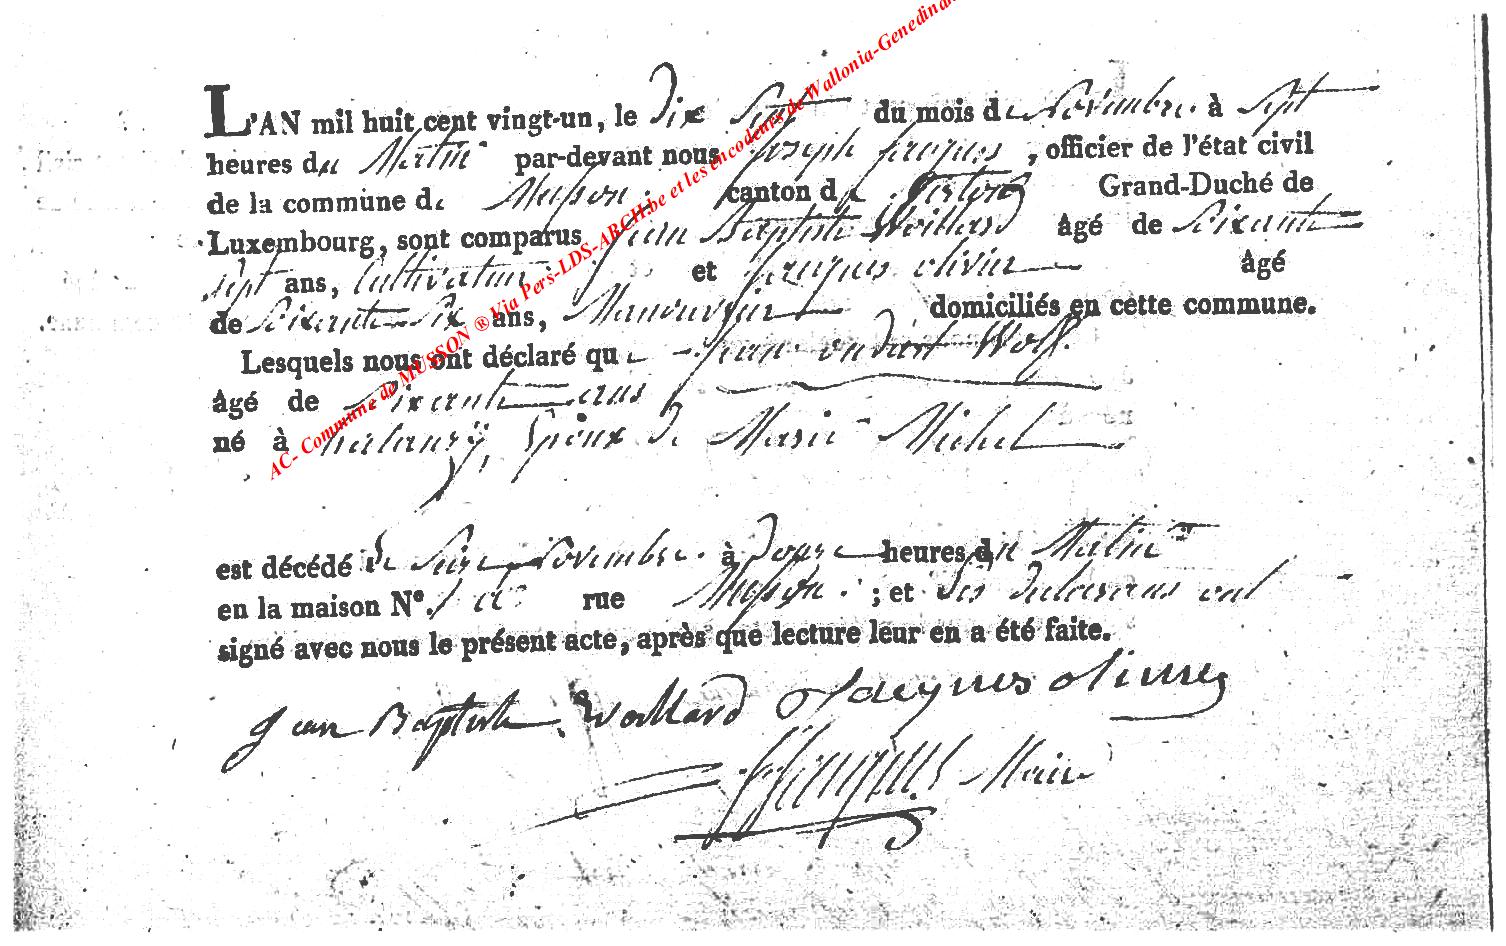 L'AN mil huit cent vingt-un, le Dix Sept du mois de Novembre à Sept
heures du Matin par-devant nous Joseph Jacques, officier de l'état civil
de la commune de Musson. canton de Virton Grand-Duché de
Luxembourg, sont comparus Jean Baptiste Woillard âgé de Soixante
sept ans, Cultivateur et Jacques olivier âgé
de Soixante Six ans, Manouvrier domiciliés en cette commune.
Lesquels nous ont déclaré que Jean Wolf.
âgé de Soixante ans
né à halanzÿ, Epoux de Marie Michel
est décédé le Seize Novembre. à Douze heures du Matin
en la maison N°. rue Musson. ; et Les Declarans ont
signé avec nous le présent acte, après que lecture leur en a été faite.
Jean Baptiste Woillard Jacques olivier
JJacques Maire
AC- Commune de MUSSON ® Via Pers-LDS-ARCH.be et les encodeurs de Wallonia-Genedinan